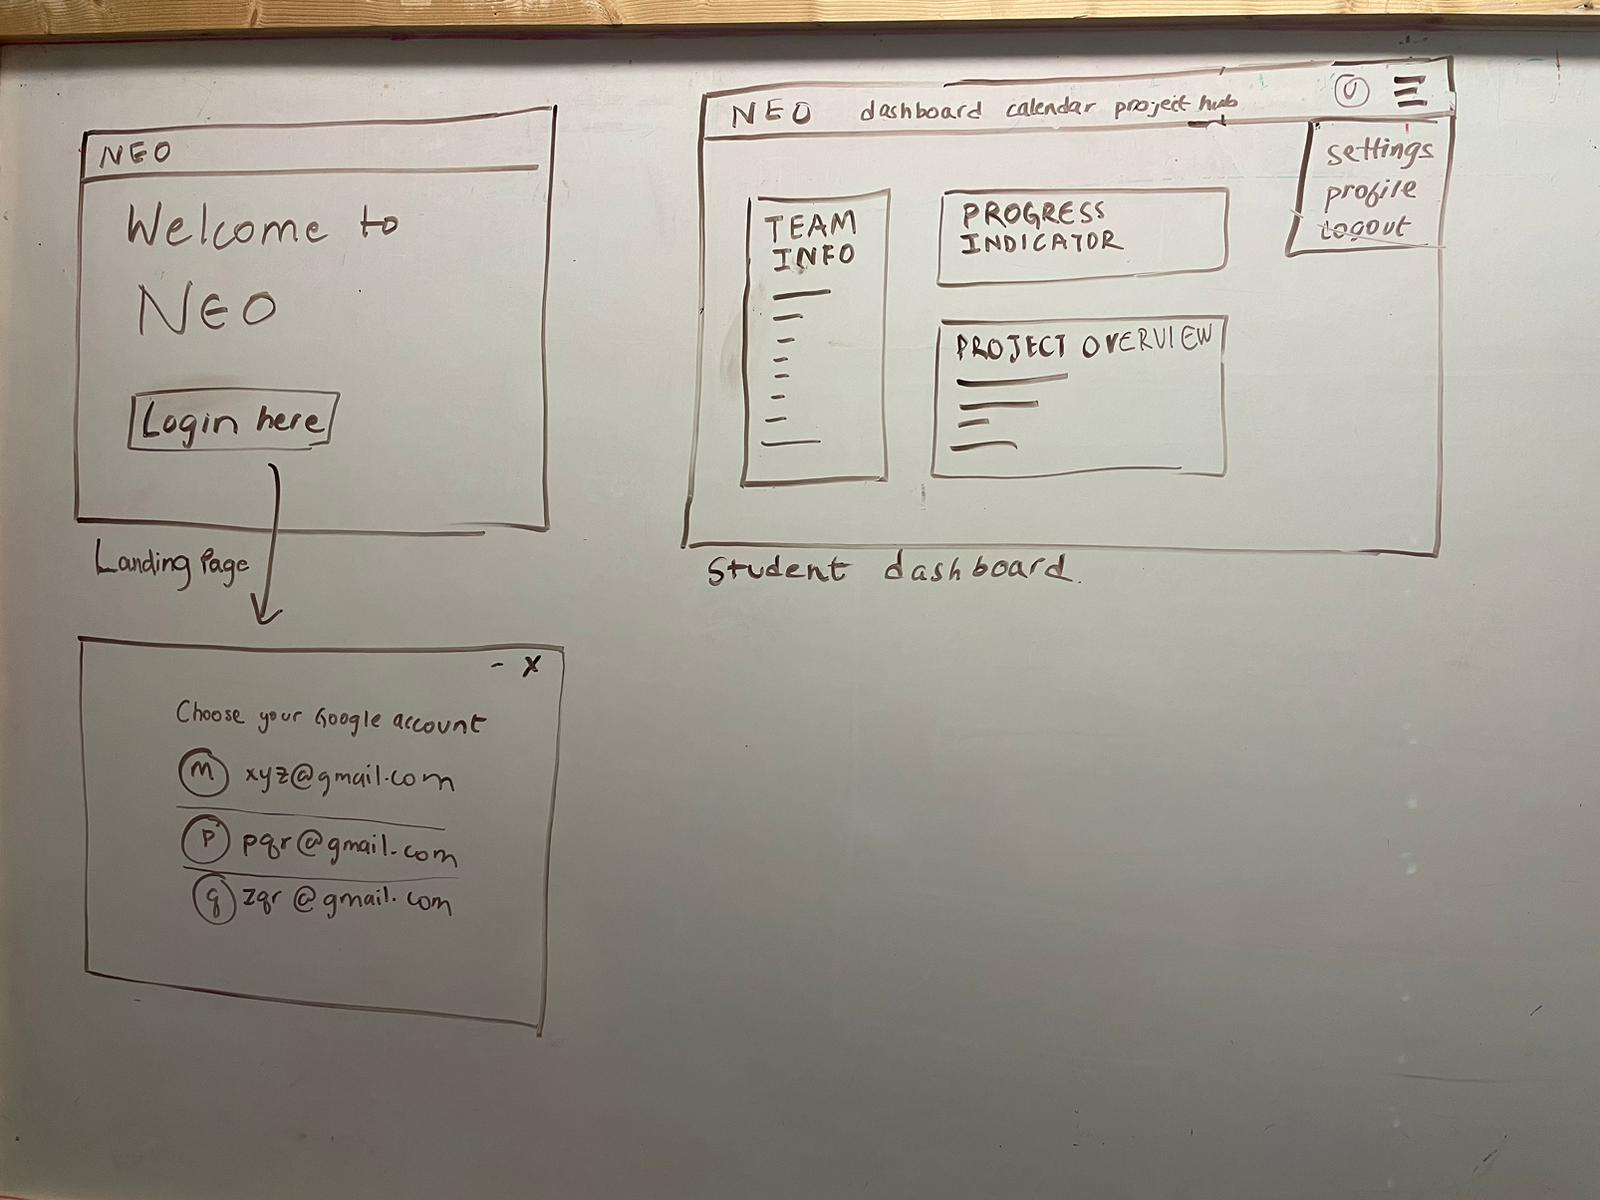 NEO
Welcome to
NEO
Login here
Landing Page
- X
Choose your Google account
M xyz@gmail.com
P pqr@gmail.com
q zqr@gmail.com
NEO dashboard calendar project hub U
settings
profile
Logout
TEAM
INFO
PROGRESS
INDICATOR
PROJECT OVERVIEW
Student dashboard.